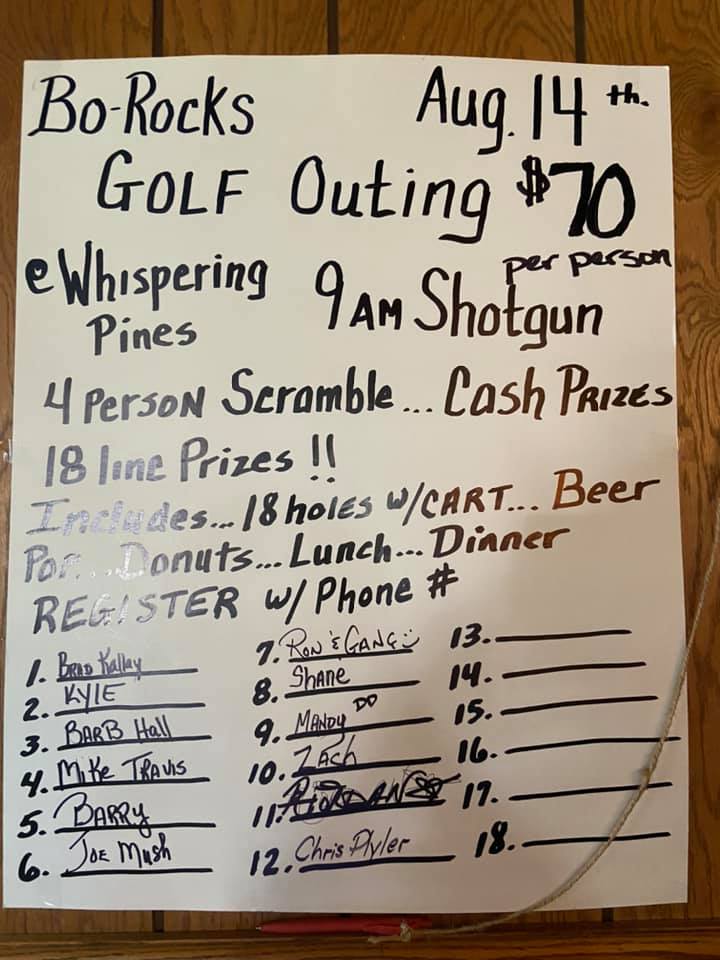 Bo-Rocks Aug. 14th.
GOLF Outing $70
per person
@ Whispering
Pines
9AM Shotgun
4 PERSON Scramble... Cash PRIZES
18 line Prizes !!
Includes... 18 holes w/CART... Beer
Pop... Donuts... Lunch... Dinner
REGISTER w/ Phone #
1. BRAD Kallay
2. KYLE
3. BARB Hall
4. Mike TRAVIS
5. BARRY
6. JOE Mush
7. RON & GANG
8. Shane
9. MANDY DD
10. ZACh
11.
12. Chris Plyler
13.
14.
15.
16.
17.
18.